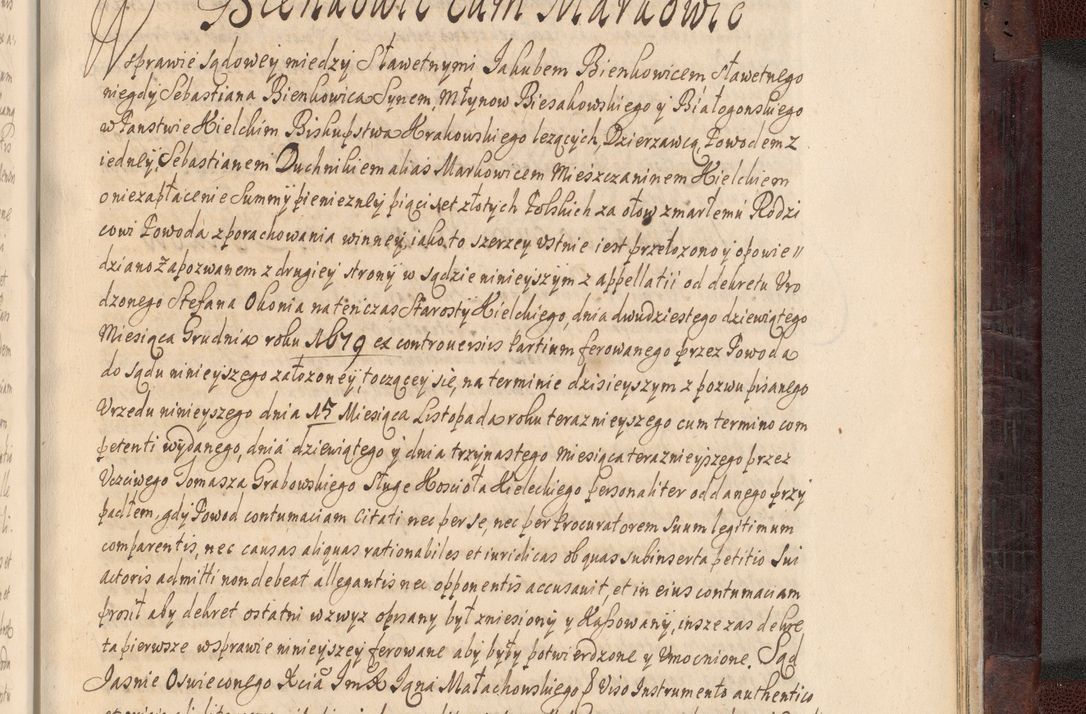 Bienkowic cum Markowic
W sprawie sądowey miedzy Sławetnymi Jakubem Bienkowicem sławetnego
niegdy Sebastiana Bienkowica Synem, Młynow Biesakowskiego y Białogonskiego
w Panstwie Kielckim Biskupstwa Krakowskiego lezących, Dzierzawcą, Powodem z
iedney, Sebastianem Duchnikiem alias Markowicem Mieszczaninem Kielckiem
o niezapłacenie Summy pieniezney piąci set złotych Polskich za ołow zmarłemu Rodzi
cowi Powoda z porachowania winney, iako to szerzey ustnie iest przełozono y opowie
dziano Zapozwanem z drugiey strony w sądzie ninieyszym z appellatii od dekretu Uro
dzonego Stefana Okonia natenczas Starosty Kielckiego, dnia dwudziestego dziewiątego
Miesiąca Grudnia roku 1679 ex controversiis Partium ferowanego przez Powoda
do sądu ninieyszego załozoney, toczącey się, na terminie dzisieyszym z pozwu pisanego
Urzedu ninieyszego dnia 15 Miesiąca Listopada roku teraznieyszego cum termino com
petenti wydanego, dnia dziewiątego y dnia trzynastego Miesiąca teraznieyszego przez
Uczciwego Tomasza Grabowskiego Sługe Kosciola Kieleckiego personaliter oddanego przy
padłem, gdy Powod contumaciam Citati nec per se, nec per Procuratorem suum legitimum
comparentis, nec causas aliquas rationabiles et iuridicas ob quas subinserta petitio Sui
actoris admitti non debeat allegantis nec opponentis accusavit, et in eius contumaciam
prosił aby dekret ostatni wzwyz opisany był zniesiony y Kassowany, insze zas dekre
ta pierwsze w sprawie ninieyszey ferowane aby były potwierdzone y Umocnione. Sąd
Jasnie Oswieconego Xcia Jmx Jana Małachowskiego Viso Instrumento authentico